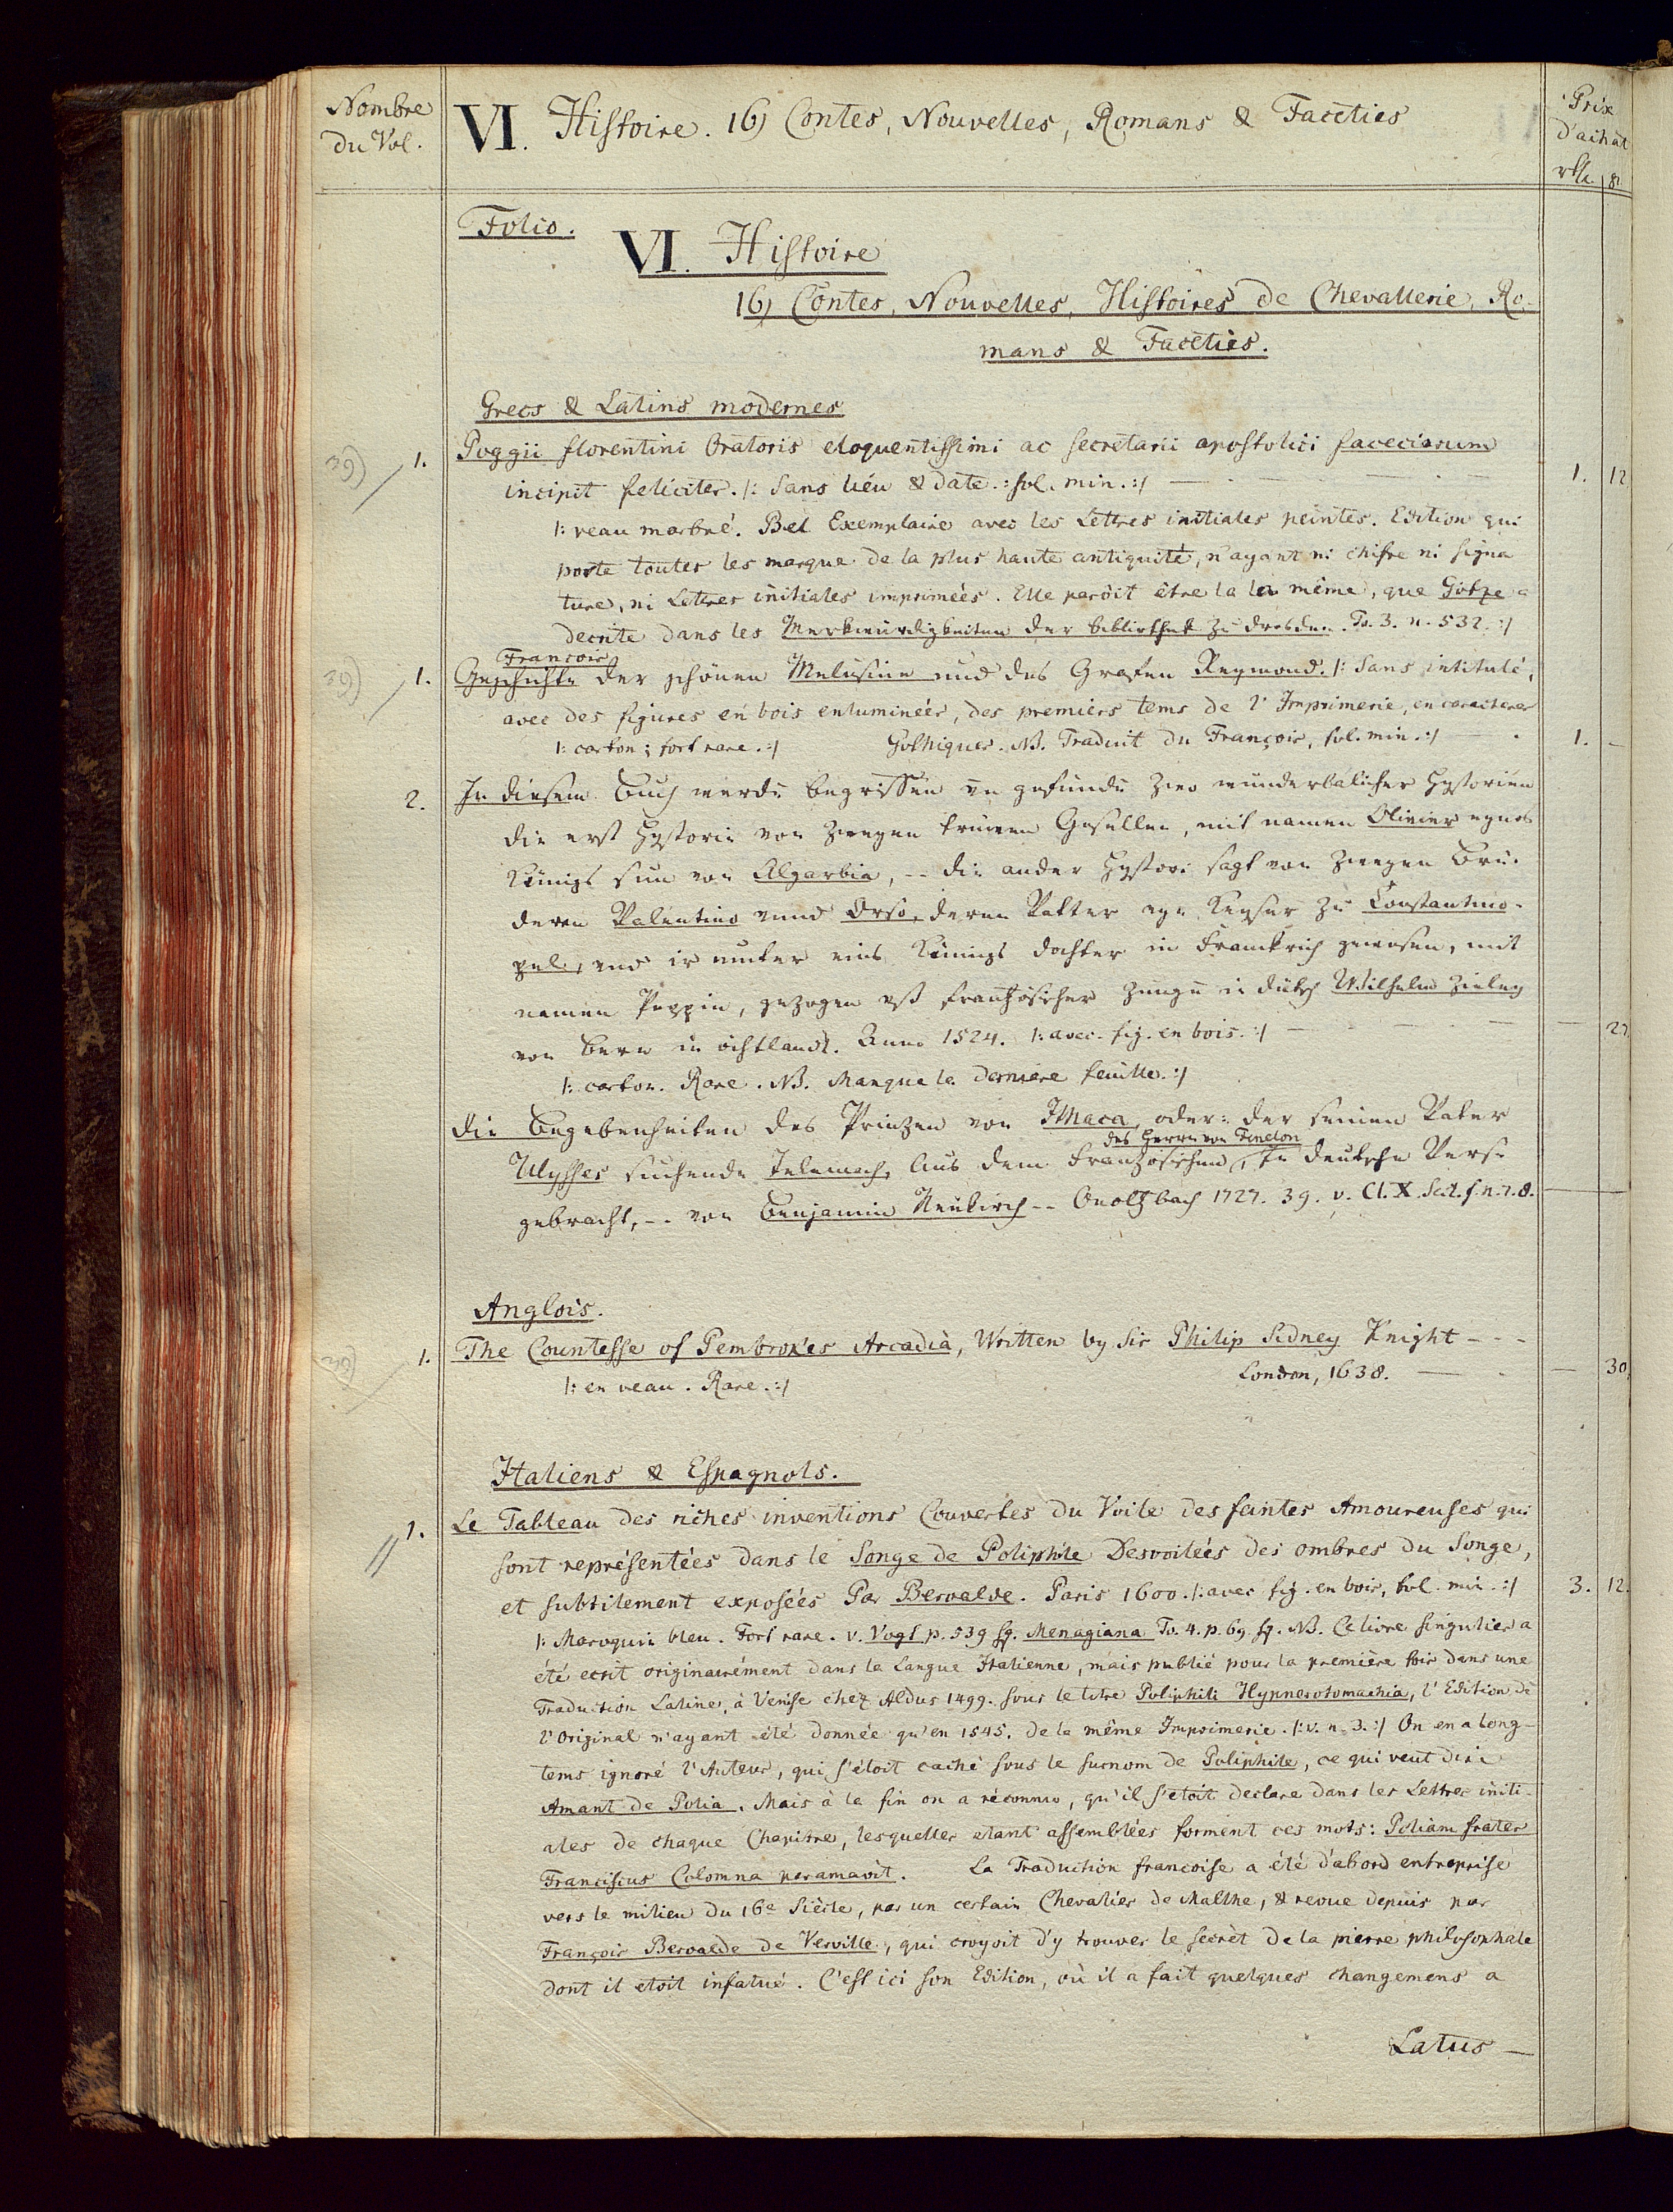 Nombre
du Vol.
VI. Histoire. 16) Contes, Nouvelles, Romans & Faceties
Prix
d'achat
rth. gr.
Folio.
VI. Histoire
16) Contes, Nouvelles, Histoires de Chevallerie, Ro-
mans & Faceties.
Grecs & Latins modernes
39) 1. Poggii florentini Oratoris eloquentissimi ac secretarii apostolici faceciarum
incipit feliciter. /: Sans liéu & date. : fol. min. :/ — 1. 12
/: veau marbré. Bel Exemplaire avec les Lettres initiales peintes. Edition qui
porte toutes les marque de la plus haute antiquité, n'ayant ni chifre ni signa
ture, ni Lettres initiales impriméés. Elle paroit être la la même, que Götze a
decrite dans les Merkwürdigkeiten der bibliothek zu dresden. To. 3. n. 532. :/
François
39) 1. Geschichte der schönen Melusine und des Grafen Reymond. /: Sans intitulé,
avec des figures en bois enlumineés, des premiers tems de l'Imprimerie, en caracteres
/: carton ; fort rare. :/ Gothiques. NB. Traduit du François, fol. min. :/ — 1. —
2. In diesem Buch werde begriffen un gefunde zwo wunderbalicher Hystorien
die erst Hystorie von zweyen trüwen Gesellen, mit namen Olivier eynes
Künigs sun von Algarbia, -- die ander Hystori sagt von zweyen Brü-
deren Valentino unnd Orso, deren Vatter eyn Keyser zu Constantino-
pel, und ir muter eins Künigs dochter in Franckrich gewesen, mit
namen Peppin, gezogen uß frantzösischer zunge in dütsch Wilhelm Zieley
von Bern in öchtlandt. Anno 1524. /: avec. fig. en bois. :/ — — 27.
/: carton. Rare. NB. Manque la derniere feuille. :/
Die Begebenheiten des Prinzen von Ithaca, oder: der seinen Vater
des Herrn von Fenelon
Ulysses suchende Telemach, Aus dem Französischen, in deutsche Verse
gebracht, -- von Benjamin Neukirch -- Onoltzbach 1727. 39. v. Cl. X. Sect. f. n. 7. 8. —
Anglois.
39) 1. The Countesse of Pembrokes Arcadia, Written by Sir Philip Sidney Knight - - -
/: en veau. Rare. :/ London, 1638. — — 30.
Italiens & Espagnols.
1. Le Tableau des riches inventions Couvertes du Voile des feintes Amoureuses qui
sont représentées dans le Songe de Poliphile Desvoiléés des ombres du Songe,
et subtilement exposéés Par Beroalde. Paris 1600. /: avec fig. en bois, fol. min. :/ 3. 12.
/: Maroquin bleu. Fort rare. v. Vogt p. 539 sq. Menagiana To. 4. p. 69 sq. NB. Ce livre singulier a
été ecrit originairément dans la Langue Italienne, mais publié pour la première fois dans une
Traduction Latine, à Venise chez Aldus 1499. sous le titre Poliphili Hypnerotomachia, l'Edition de
l'Original n'ayant été donnée qu'en 1545. de la même Imprimerie. /: v. n. 3. :/ On en a long-
tems ignoré l'Auteur, qui s'étoit caché sous le surnom de Poliphile, ce qui veut dire
Amant de Polia. Mais à la fin on a réconnu, qu'il s'etoit declare dans les Lettres initi-
ales de chaque Chapitre, lesquelles etant assemblées forment ces mots: Poliam frater
Franciscus Colomna peramavit. La Traduction françoise a été d'abord entreprise
vers le milieu du 16e Siècle, par un certain Chevalier de Malthe, & revue depuis par
François Beroalde de Verville, qui croyoit d'y trouver le secrèt de la pierre philosophale
dont il etoit infatué. C'est ici son Edition, où il a fait quelques changemens a
Latus —